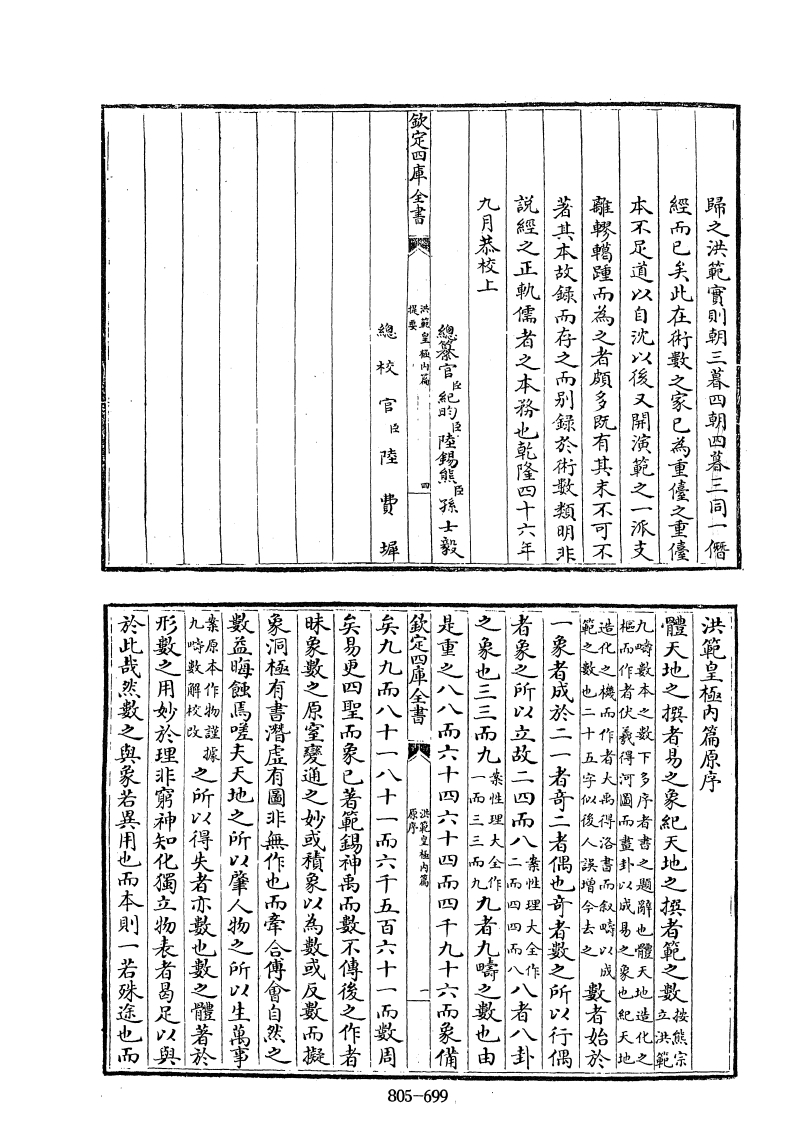 歸之洪範實則朝三暮四朝四暮三同一僭
經而已矣此在術數之家已為重儓之重儓
本不足道以自沈以後又開演範之一派支
離轇轕踵而為之者頗多既有其末不可不
著其本故録而存之而别録於術數類明非
說經之正軌儒者之本務也乾隆四十六年
九月恭校上
總纂官臣紀昀臣陸錫熊臣孫士毅
欽定四庫全書
洪範皇極内篇
提要
四
總校官臣陸費墀
洪範皇極内篇原序
體天地之撰者易之象紀天地之撰者範之數按熊宗
立洪範
九疇數本之數下多序者書之題辭也體天地造化之
樞而作者伏羲得河圖而畫卦以成易之象也紀天地
造化之機而作者大禹得洛書而叙疇以成
範之數也二十五字似後人誤增今去之
數者始於
一象者成於二一者竒二者偶也竒者數之所以行偶
者象之所以立故二四而八案性理大全作
二而四四而八
八者八卦
之象也三三而九案性理大全作
一而三三而九
九者九疇之數也由
是重之八八而六十四六十四而四千九十六而象備
欽定四庫全書
洪範皇極内篇
原序
一
矣九九而八十一八十一而六千五百六十一而數周
矣易更四聖而象已著範錫神禹而數不傳後之作者
昧象數之原窒變通之妙或積象以為數或反數而擬
象洞極有書潛虚有圖非無作也而牽合傅會自然之
數益晦蝕焉嗟夫天地之所以肇人物之所以生萬事
案原本作物謹據
九疇數解校改
之所以得失者亦數也數之體著於
形數之用妙於理非窮神知化獨立物表者曷足以與
於此哉然數之與象若異用也而本則一若殊途也而
805-699